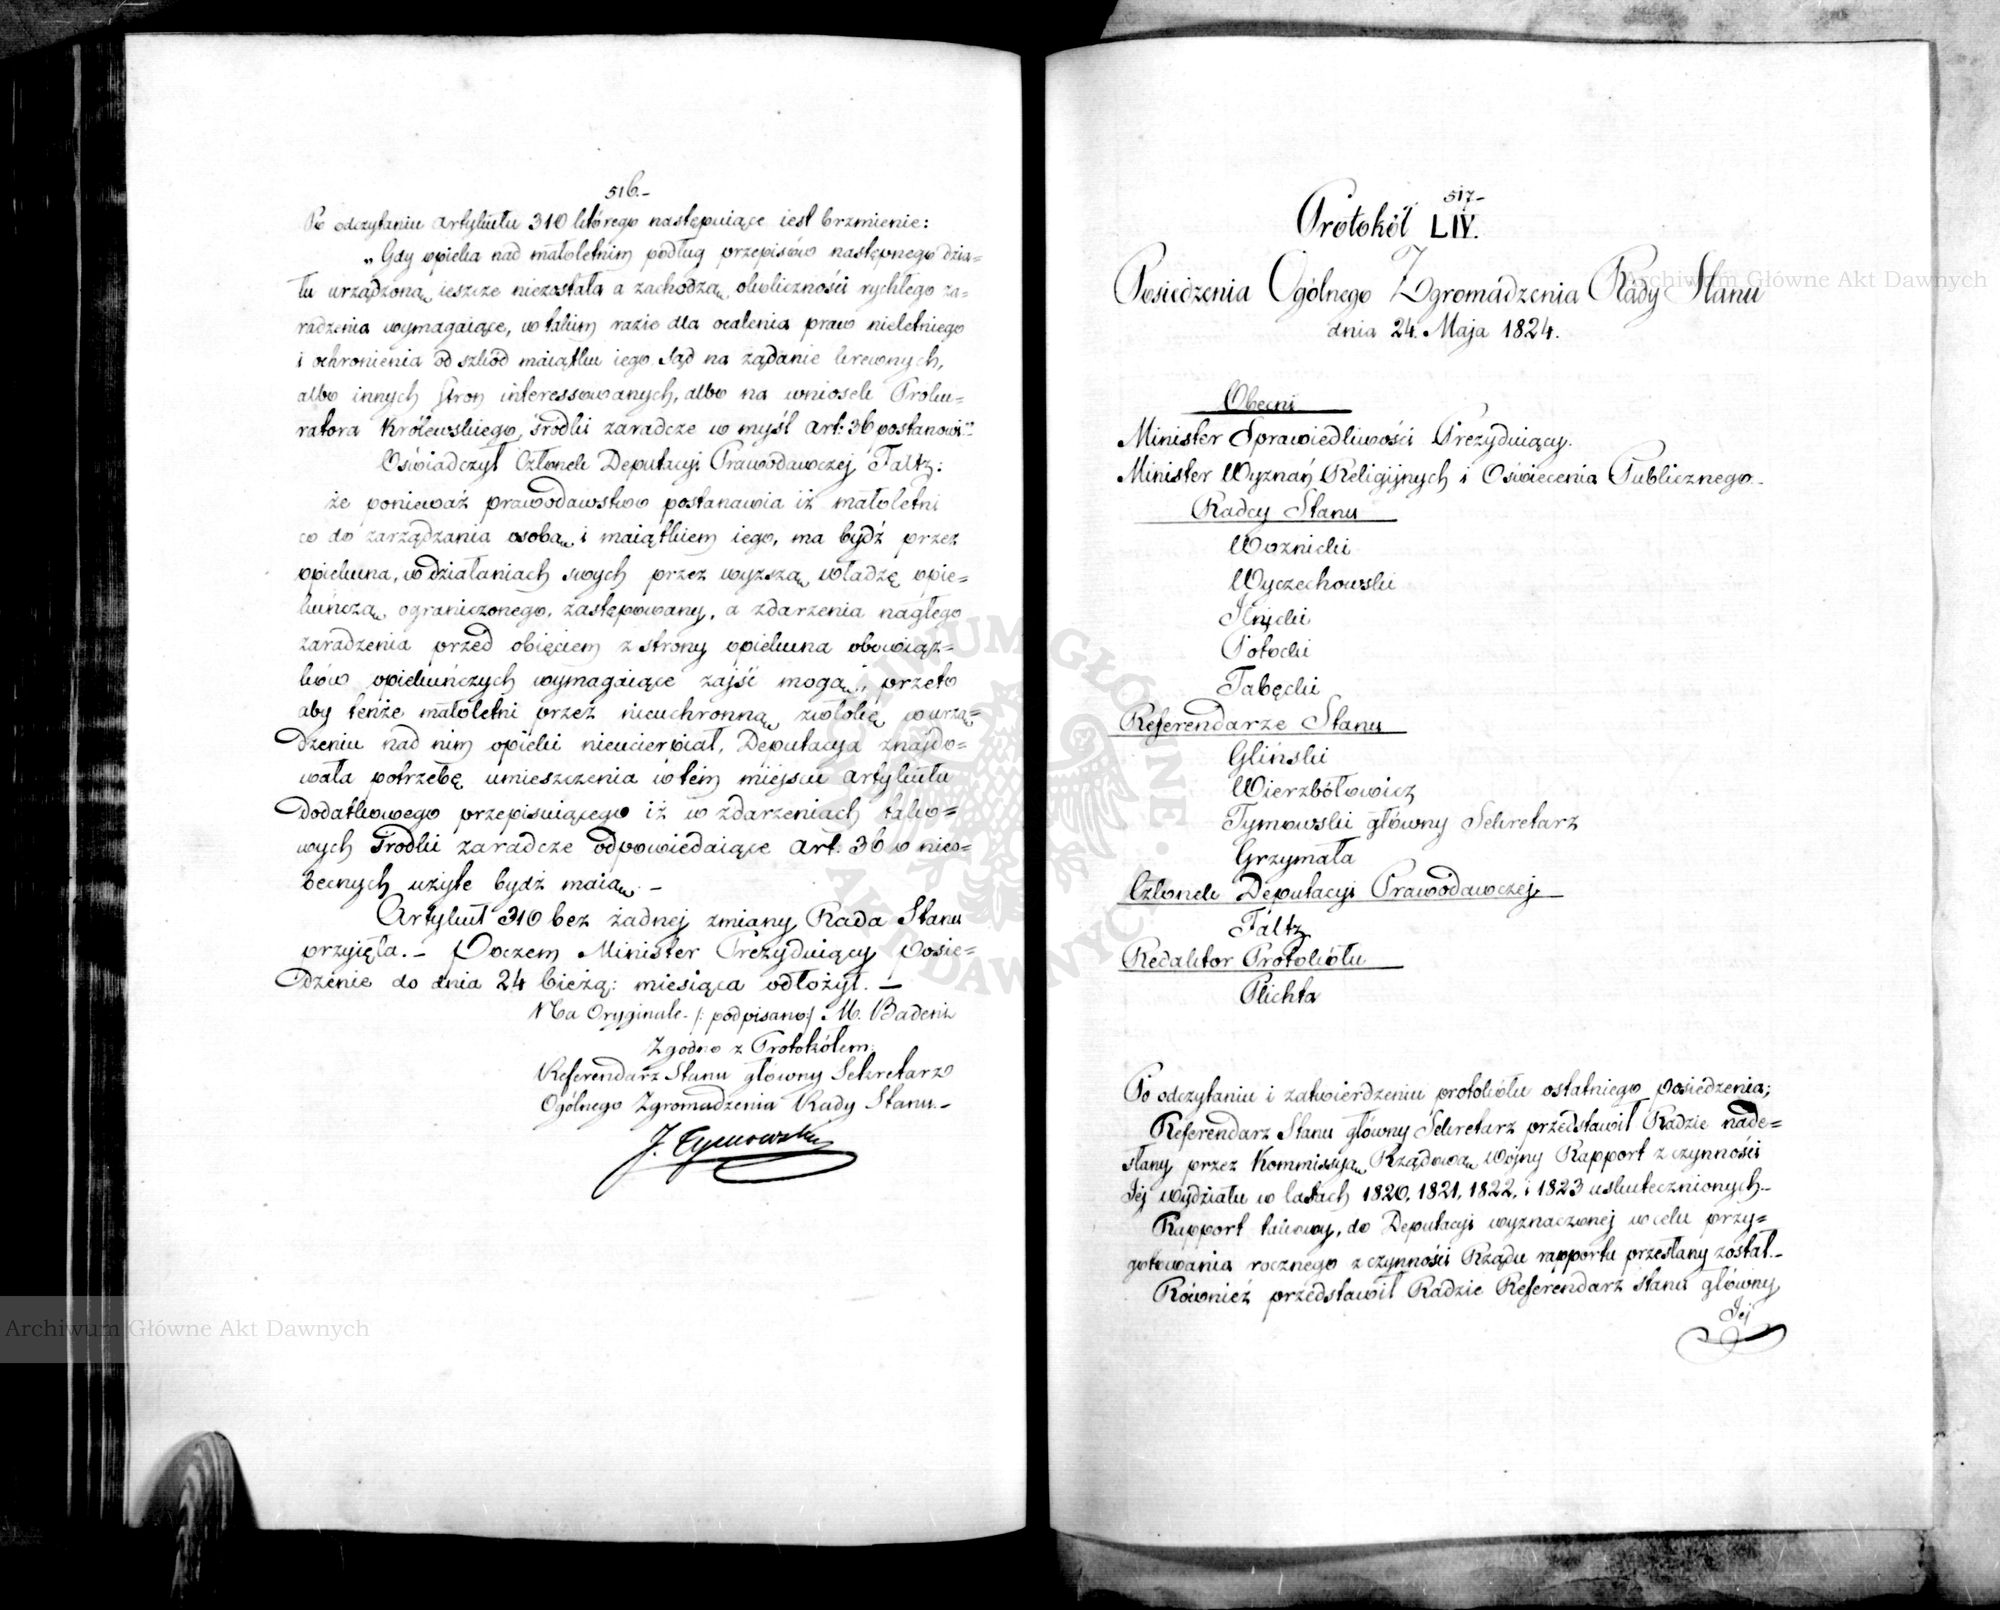 516.-
Po odczytaniu artykułu 310 którego następuiące iest brzmienie:
„Gdy opieka nad małoletnim podług przepisów następnego dzia=
łu urządzoną ieszcze niezostała a zachodzą okoliczności rychłego za=
radzenia wymagaiące, w takim razie dla ocalenia praw nieletniego
i ochronienia od szkód maiątku iego Sąd na żądanie krewnych,
albo innych stron interessowanych, albo na wniosek Proku=
ratora Królewskiego, środki zaradcze w myśl art: 36 postanowi"
Oświadczył Członek Deputacyi Prawodawczej Faltz:
że ponieważ prawodawstwo postanawia iż małoletni
co do zarządzania osobą i maiątkiem iego, ma bydź przez
opiekuna, w działaniach swych przez wyższą władzę opie=
kuńczą ograniczonego, zastępowany, a zdarzenia nagłego
zaradzenia przed obięciem z strony opiekuna obowiąz=
ków opiekuńczych wymagaiące zajść mogą, przeto
aby tenże małoletni przez nieuchronną zwłokę w urzą=
dzeniu nad nim opieki nieucierpiał, Deputacya znajdo=
wała potrzebę umieszczenia w tém miejscu artykułu
dodatkowego przepisuiącego iż w zdarzeniach tako=
wych środki zaradcze odpowiedaiące art. 36 o nieo=
becnych użyte bydź maią. -
Artykuł 310 bez żadnej zmiany Rada Stanu
przyięła. - Poczem Minister Prezyduiący posie=
dzenie do dnia 24 bieżą: miesiąca odłożył. -
Na Oryginale - /: podpisano :/ M. Badeni
Zgodno z Protokółem:
Referendarz Stanu główny Sekretarz
Ogólnego Zgromadzenia Rady Stanu. -
J. Tymowski
517-
Protokół LIV.
Posiedzenia Ogólnego Zgromadzenia Rady Stanu
dnia 24. Maja 1824.
Obecni
Minister Sprawiedliwości Prezyduiący.
Minister Wyznań Religijnych i Oświecenia Publicznego.
Radcy Stanu
Woznicki
Wyczechowski
Potocki
Tabęcki
Referendarze Stanu
Gliński
Wierzbołowicz
Tymowski główny Sekretarz
Grzymała
Członek Deputacyi Prawodawczej
Faltz
Redaktor Protokółu
Plichta
Po odczytaniu i zatwierdzeniu protokółu ostatniego posiedzenia;
Referendarz Stanu główny Sekretarz przedstawił Radzie nade=
słany przez Kommissyą Rządową Wojny Rapport z czynności
Jej wydziału w latach 1820, 1821, 1822, i 1823 uskutecznionych.-
Rapport takowy, do Deputacyi wyznaczonej w celu przy=
gotowania rocznego z czynności Rządu rapportu przesłany został.-
Również przedstawił Radzie Referendarz stanu główny
Jej
Archiwum Główne Akt Dawnych
Archiwum Główne Akt Dawnych
ARCHIWUM GŁÓWNE AKT DAWNYCH